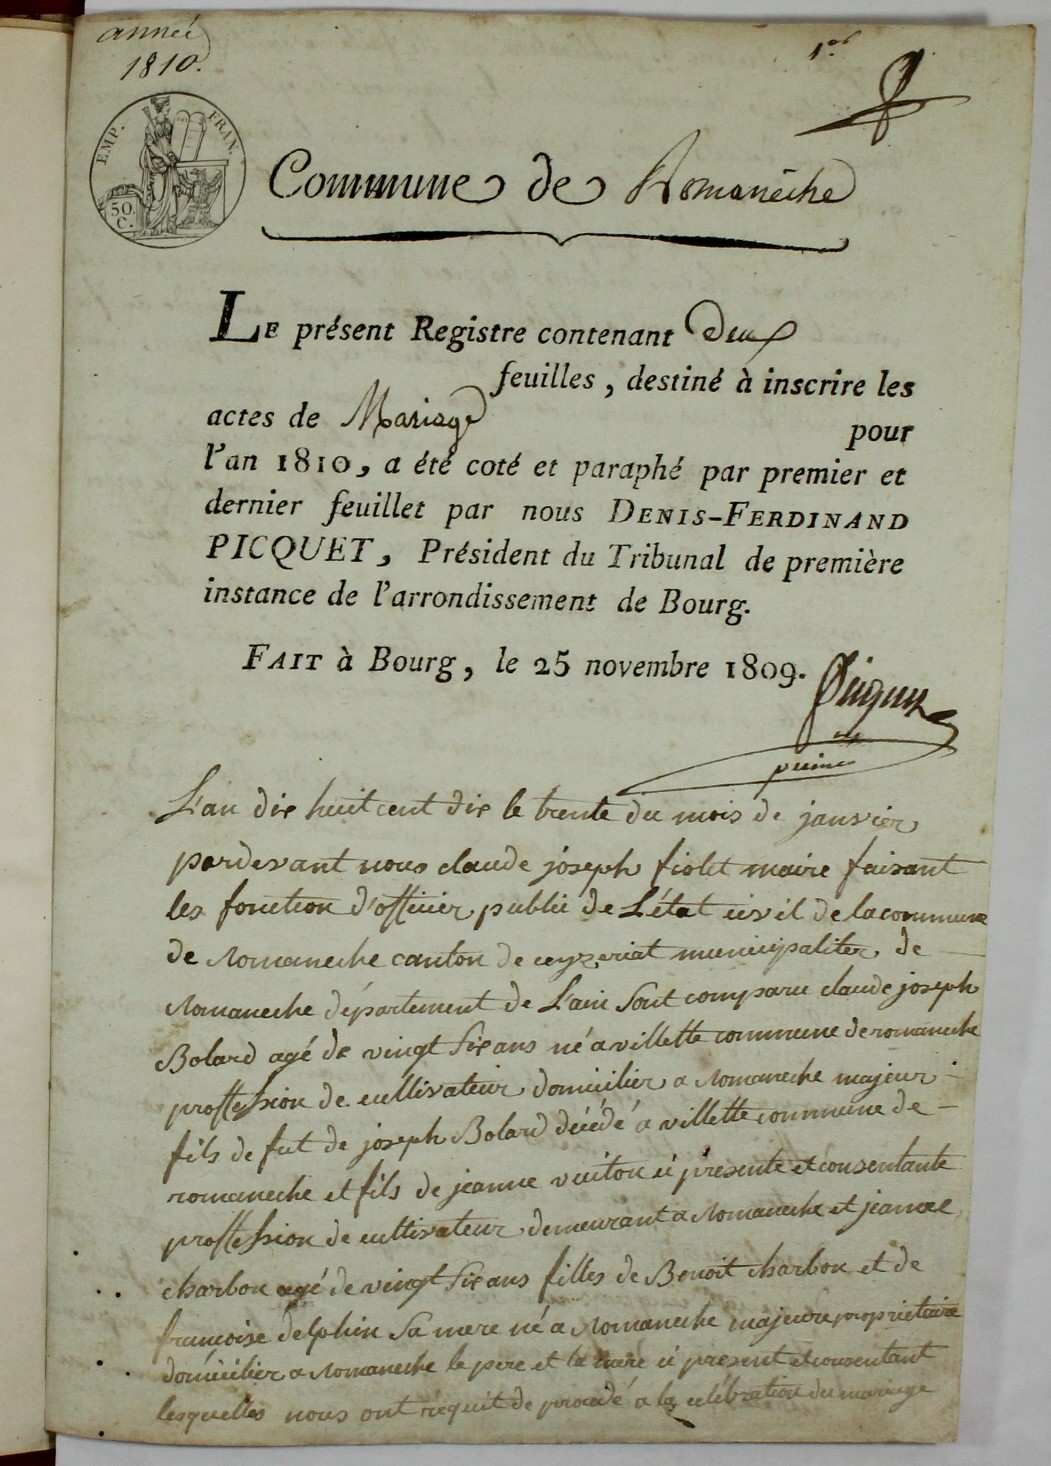 année
1810.
1er
EMP. FRAN.
50
C.
Commune de Romanèche
LE présent Registre contenant deux
feuilles, destiné à inscrire les
actes de Mariage pour
l'an 1810, a été coté et paraphé par premier et
dernier feuillet par nous DENIS-FERDINAND
PICQUET, Président du Tribunal de première
instance de l'arrondissement de Bourg.
FAIT à Bourg, le 25 novembre 1809.
L'an dix huit cent dix le trente du mois de janvier
pardevant nous claude joseph fiolet maire faisant
les fonction d'officier public de L'état civil de la commune
de Romaneche canton de ceyzeriat municipaliter de
Romaneche département de L'ain Sont comparu claude joseph
Bolard agé de vingt Six ans né a villette commune de romaneche
proffession de cultivateur domicilier a Romaneche majeur
fils de fut de joseph Bolard décédé a villette commune de
romaneche et fils de jeanne vuiton ci présente et consentante
proffession de cultivateur demeurant a Romaneche et jeanne
charbon agé de vingt Six ans filles de Benoit charbon et de
françoise delphin Sa mere né a Romaneche majeure propriétaire
domicilier a Romaneche le pere et la mere ci present et consentant
lesquelles nous ont réquit de procédé a la célébration du mariage